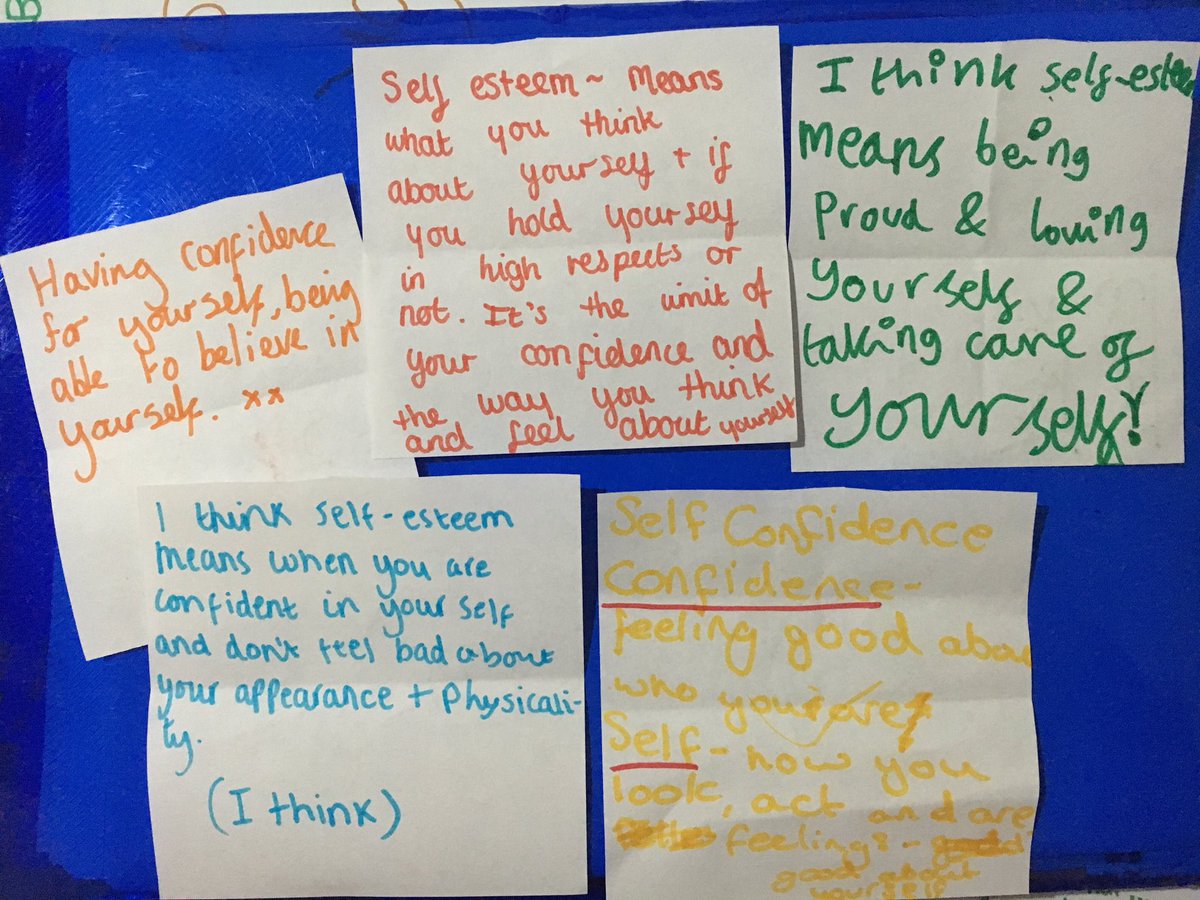 B
Having confidence
for yourself, being
able to believe in
yourself. xx
Self esteem ~ Means
what you think
about yourself + if
you hold yourself
in high respects or
not. It's the limit of
your confidence and
the way you think
and feel about yourself
I think self-esteem
means being
proud & loving
yourself &
taking care of
yourself!
I think self-esteem
means when you are
confident in your self
and don't feel bad about
your appearance + physicali-
ty.
(I think)
Self Confidence
Confidence-
feeling good about
who you are
Self - how you
look, act and are
feelings -
good about
yourself